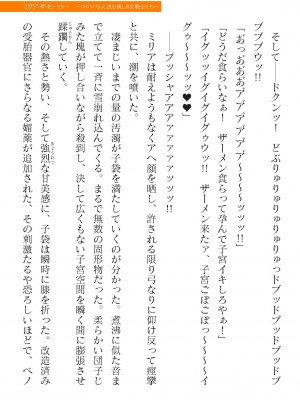 そして――ドクンッ！　どぷりゅりゅりゅりゅっドブッドブッドブッド
ブブブゥッ!!
「おっおおおアアアアアアア～～～ッッ!!」
「どうだ食らいなぁ！　ザーメン食らって孕んで子宮イキしろやぁ！」
「イグッッイグイグイグゥゥッ!!　ザーメン来たァ、子宮ごぽごぽっ～～～～イ
グゥ～～～ッッ♥♥」
――プッシャアアアアアアアアアッッッ!!
ミリアは耐えようもなくアヘ顔を晒し、許される限り弓なりに仰け反って痙攣
と共に、潮を噴いた。
凄まじいまでの量の汚濁が子袋を満たしていくのが分かった。煮沸に似た音ま
で立てて一斉に雪崩れ込んでくる。まるで無数の固形物だった。柔らかい団子じ
みた塊が押し合いながら殺到し、決して広くもない子宮空間を瞬く間に膨張させ
蹂躙していく。
その熱さと勢い、そして強烈な甘美感に、子袋は瞬時に膝を折った。改造済み
の受胎器官にさらなる媚薬が追加された、その刺激たるや恐ろしいほどで、ペノ